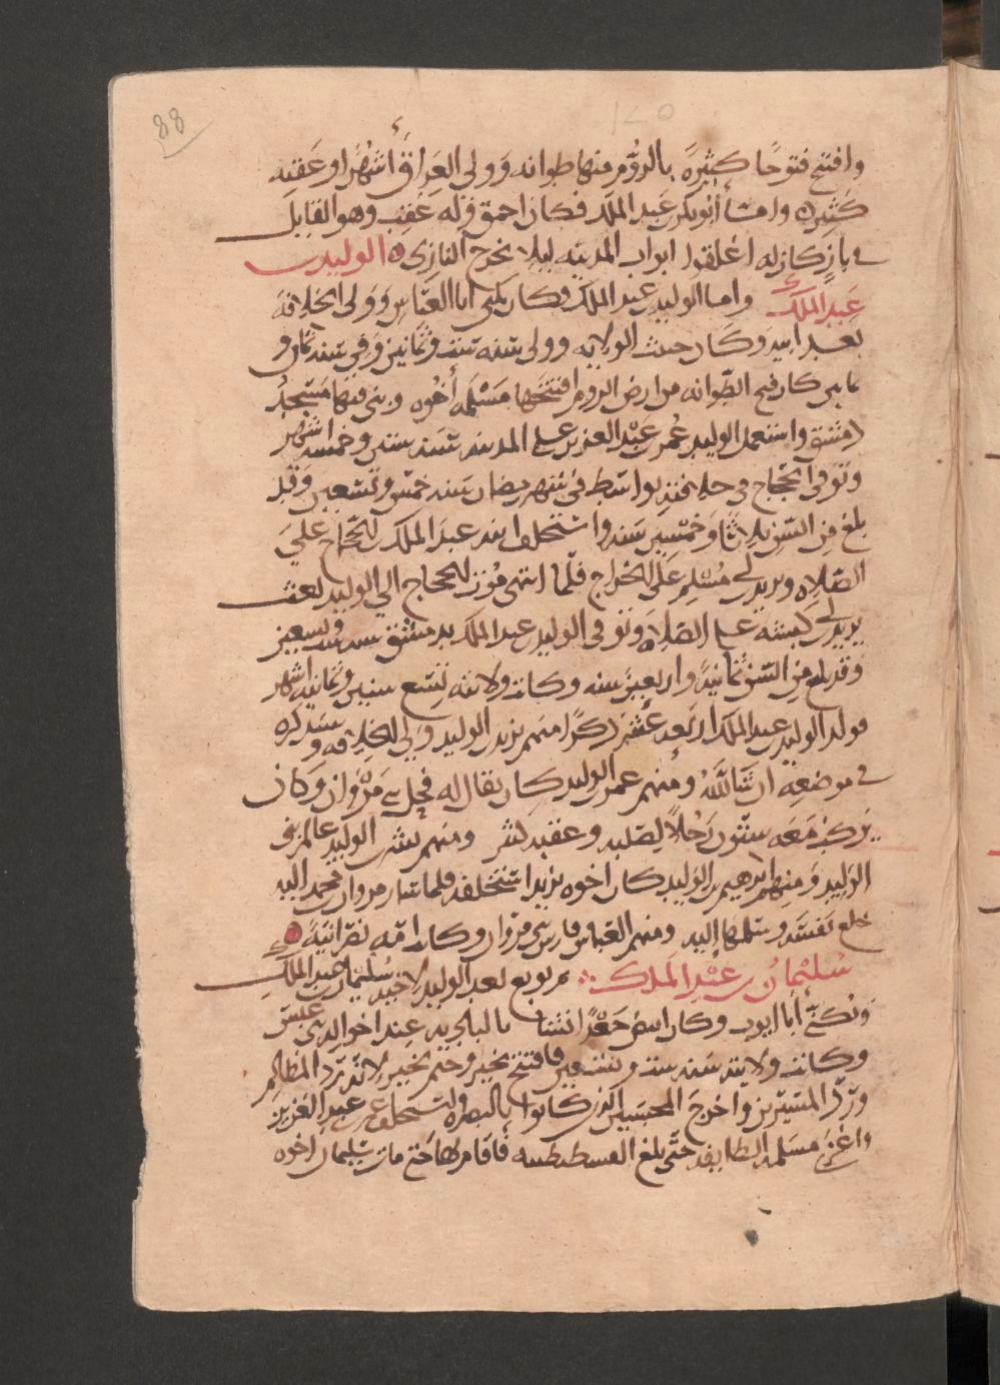 88
وافتتح فتوحًا كثيرةً بالروم منها طوانه وولى العراق أشهرًا وعقبه
كثيره واما أبو بكر بن عبد الملك فكان احمق وله عقب وهو القايل
في باز كان له اغلقوا ابواب المدينه ليلا يخرج البازى ه الوليد بن
عبد الملك واما الوليد بن عبد الملك فكان يكنى ابا العباس وولى الخلافة
بعد ابيه وكان حدث الولايه وولى سنه ست وثمانين وفي سنه ثمان و
ثمانين كان فتح الطوانه من ارض الروم افتتحها مسلمه أخوه وبنى فيها مسجد
دمشق واستعمل الوليد عمر بن عبد العزيز على المدينه سنه ستين وخمسه اشهر
وتوفى الحجاج في خلافته بواسط في شهر رمضان سنه خمس وتسعين وقد
بلغ من السن ثلاثا وخمسين سنه واستخلف ابنه عبد الملك بن الحجاج علي
الصلاه ويزيد بن ابى مسلم على الخراج فلما انتهى موت الحجاج الى الوليد بعث
يزيد بن ابى كبشه على الصلاه وتوفى الوليد بن عبد الملك بدمشق سنه ست وتسعين
وقد بلغ من السن ثمانية واربعين سنه وكانت ولايته تسع سنين وثمانيه اشهر
فولد الوليد بن عبد الملك اربعه عشر ذكرًا منهم يزيد بن الوليد ولى الخلافه وسنذكره
في موضعه ان شا الله ومنهم عمر بن الوليد كان يقال له فحل بنى مروان وكان
يركب معه ستون رجلاً لصلبه وعقبه كثير ومنهم بشر بن الوليد عالم بنى
الوليد ومنهم ابرهيم بن الوليد كان اخوه يزيد استخلفه فلما سار مروان بن محمد اليه
خلع نفسه وسلمها إليه ومنهم العباس فارس بنى مروان وكانت امه نصرانيه ه
سليمان بن عبد الملك ثم بويع بعد الوليد لاخيه سليمان بن عبد الملك
ويكنى أبا ايوب وكان ابيض جعدًا نشا بالباديه عند اخواله بنى عبس
وكانت ولايته سنه ست وتسعين فافتتح بخير وختم بخير لانه رد المظالم
وردّ المسيرين واخرج المحبسين الذين كانوا بالبصره واستخلف عمر بن عبد العزيز
واغزى مسلمه الطايفه حتى بلغ القسطنطينيه فأقام بها حتى مات سليمان اخوه